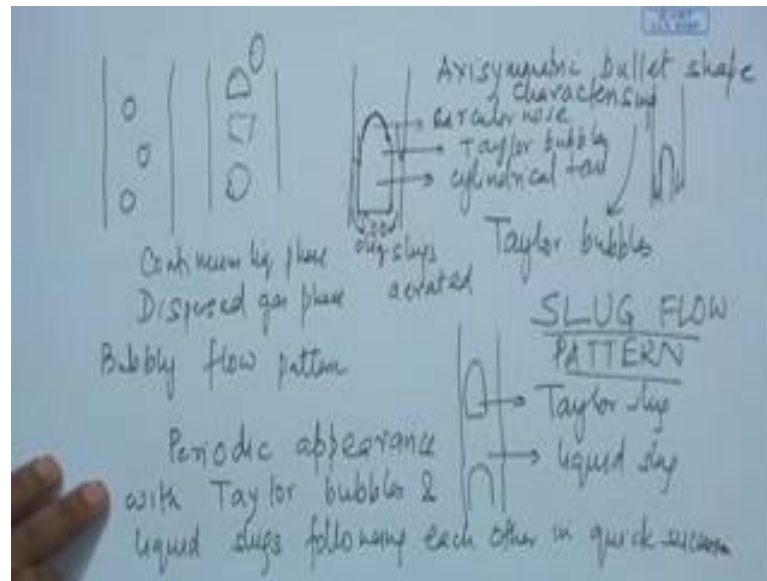 Axisymmetric bullet shape
characterising
circular nose
Taylor bubbles
cylindrical tail
Taylor bubbles
Continuous liq phase
Dispersed gas phase
liq slugs
aerated
Bubbly flow pattern
SLUG FLOW
PATTERN
Taylor slug
liquid slug
Periodic appearance
with Taylor bubbles &
liquid slugs following each other in quick succession